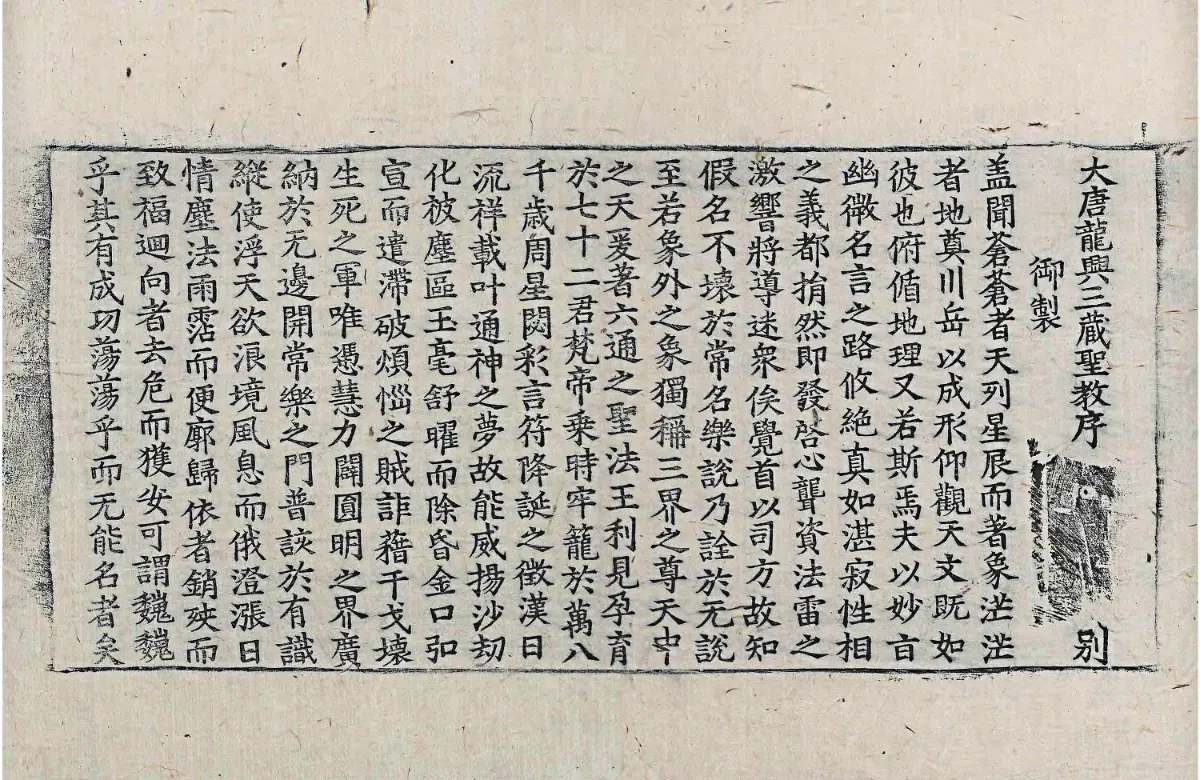 大唐龍興三蔵聖教序　别
御製
盖聞蒼蒼者天列星辰而著象茫茫
者地奠川岳以成形仰觀天文既如
彼也俯循地理又若斯焉夫以妙旨
幽微名言之路攸絶真如湛寂性相
之義都捐然即發啓心聾資法雷之
激響將導迷衆俟覺首以司方故知
假名不壞於常名樂說乃詮於无說
至若象外之象獨稱三界之尊天中
之天爰著六通之聖法王利見孕育
於七十二君梵帝乗時牢籠於萬八
千歳周星閟彩言符降誕之徴漢日
流祥載叶通神之夢故能威揚沙劫
化被塵區玉毫舒曜而除昏金口弘
宣而遣滯破煩惱之賊詎藉干戈壞
生死之軍唯憑慧力闢圓明之界廣
納於无邊開常樂之門普該於有識
縱使浮天欲浪境風息而俄澄漲日
情塵法雨霑而便廓歸依者銷殃而
致福迴向者去危而獲安可謂巍巍
乎其有成功蕩蕩乎而无能名者矣